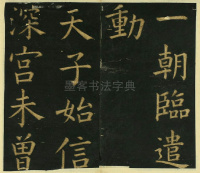 一朝臨遣
動
天子始信
深宫未曾
墨客书法字典